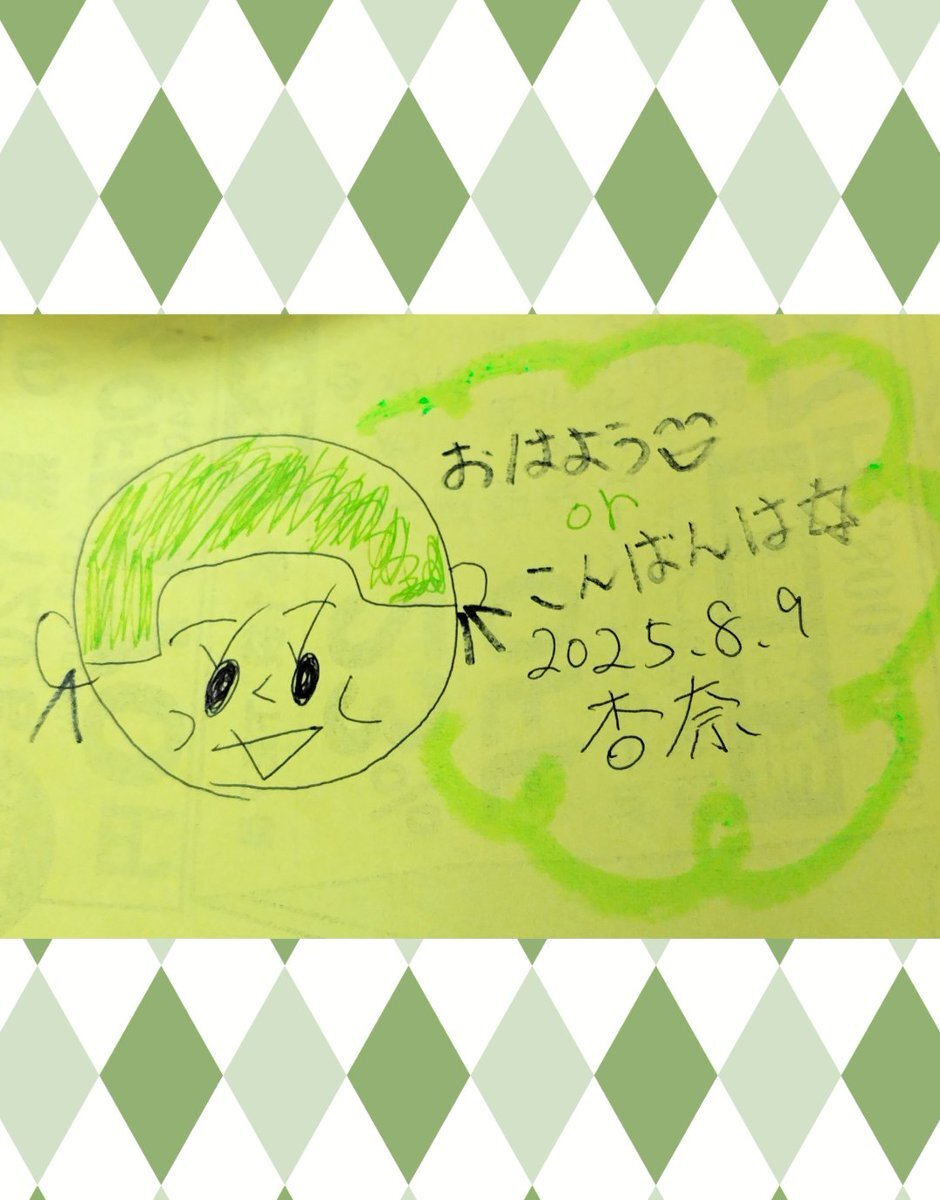 おはよう
or
こんばんは☆
2025.8.9
杏奈